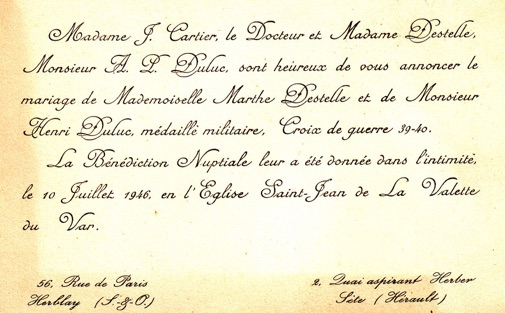 Madame J. Cartier, le Docteur et Madame Destelle,
Monsieur A. P. Duluc, sont heureux de vous annoncer le
mariage de Mademoiselle Marthe Destelle et de Monsieur
Henri Duluc, médaillé militaire, Croix de guerre 39-40.
La Bénédiction Nuptiale leur a été donnée dans l'intimité,
le 10 Juillet 1946, en l'Eglise Saint-Jean de La Valette
du Var.
56, Rue de Paris
Herblay (S.-&-O.)
2, Quai aspirant Herber
Sète (Hérault)